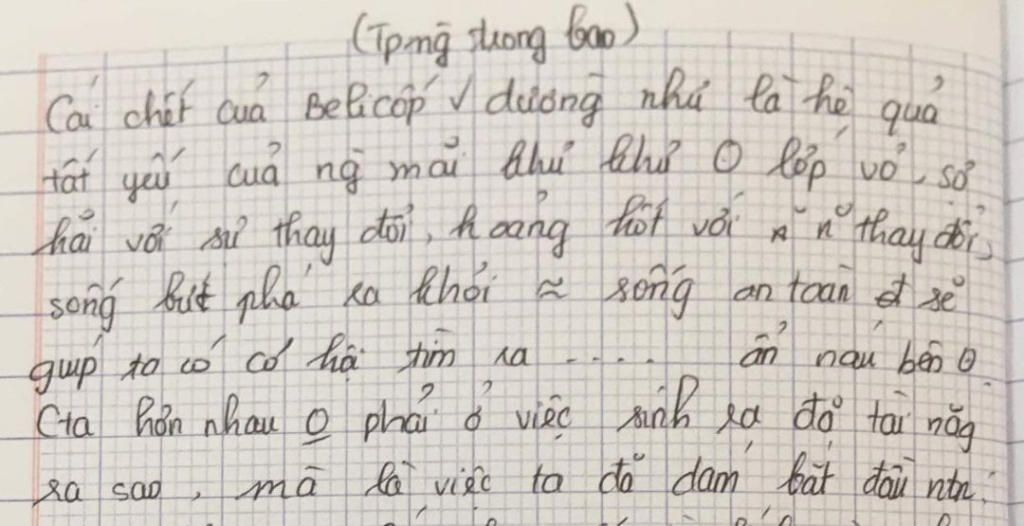 (Tpmg trong bao)
Cái chết của Bêlicốp √ dường như là hệ quả
tất yếu của ng mãi khư khư ʘ lớp vỏ, sợ
hãi với sự thay đổi, hoảng hốt với n~ thay đổi,
sống bứt phá ra khỏi ≈ sống an toàn sẽ
giúp ta có cơ hội tìm ra ..... ẩn náu bên ʘ.
Cta hơn nhau O phải ở việc sinh ra đã tài năg
ra sao, mà là việc ta đã dám bắt đầu ntn.